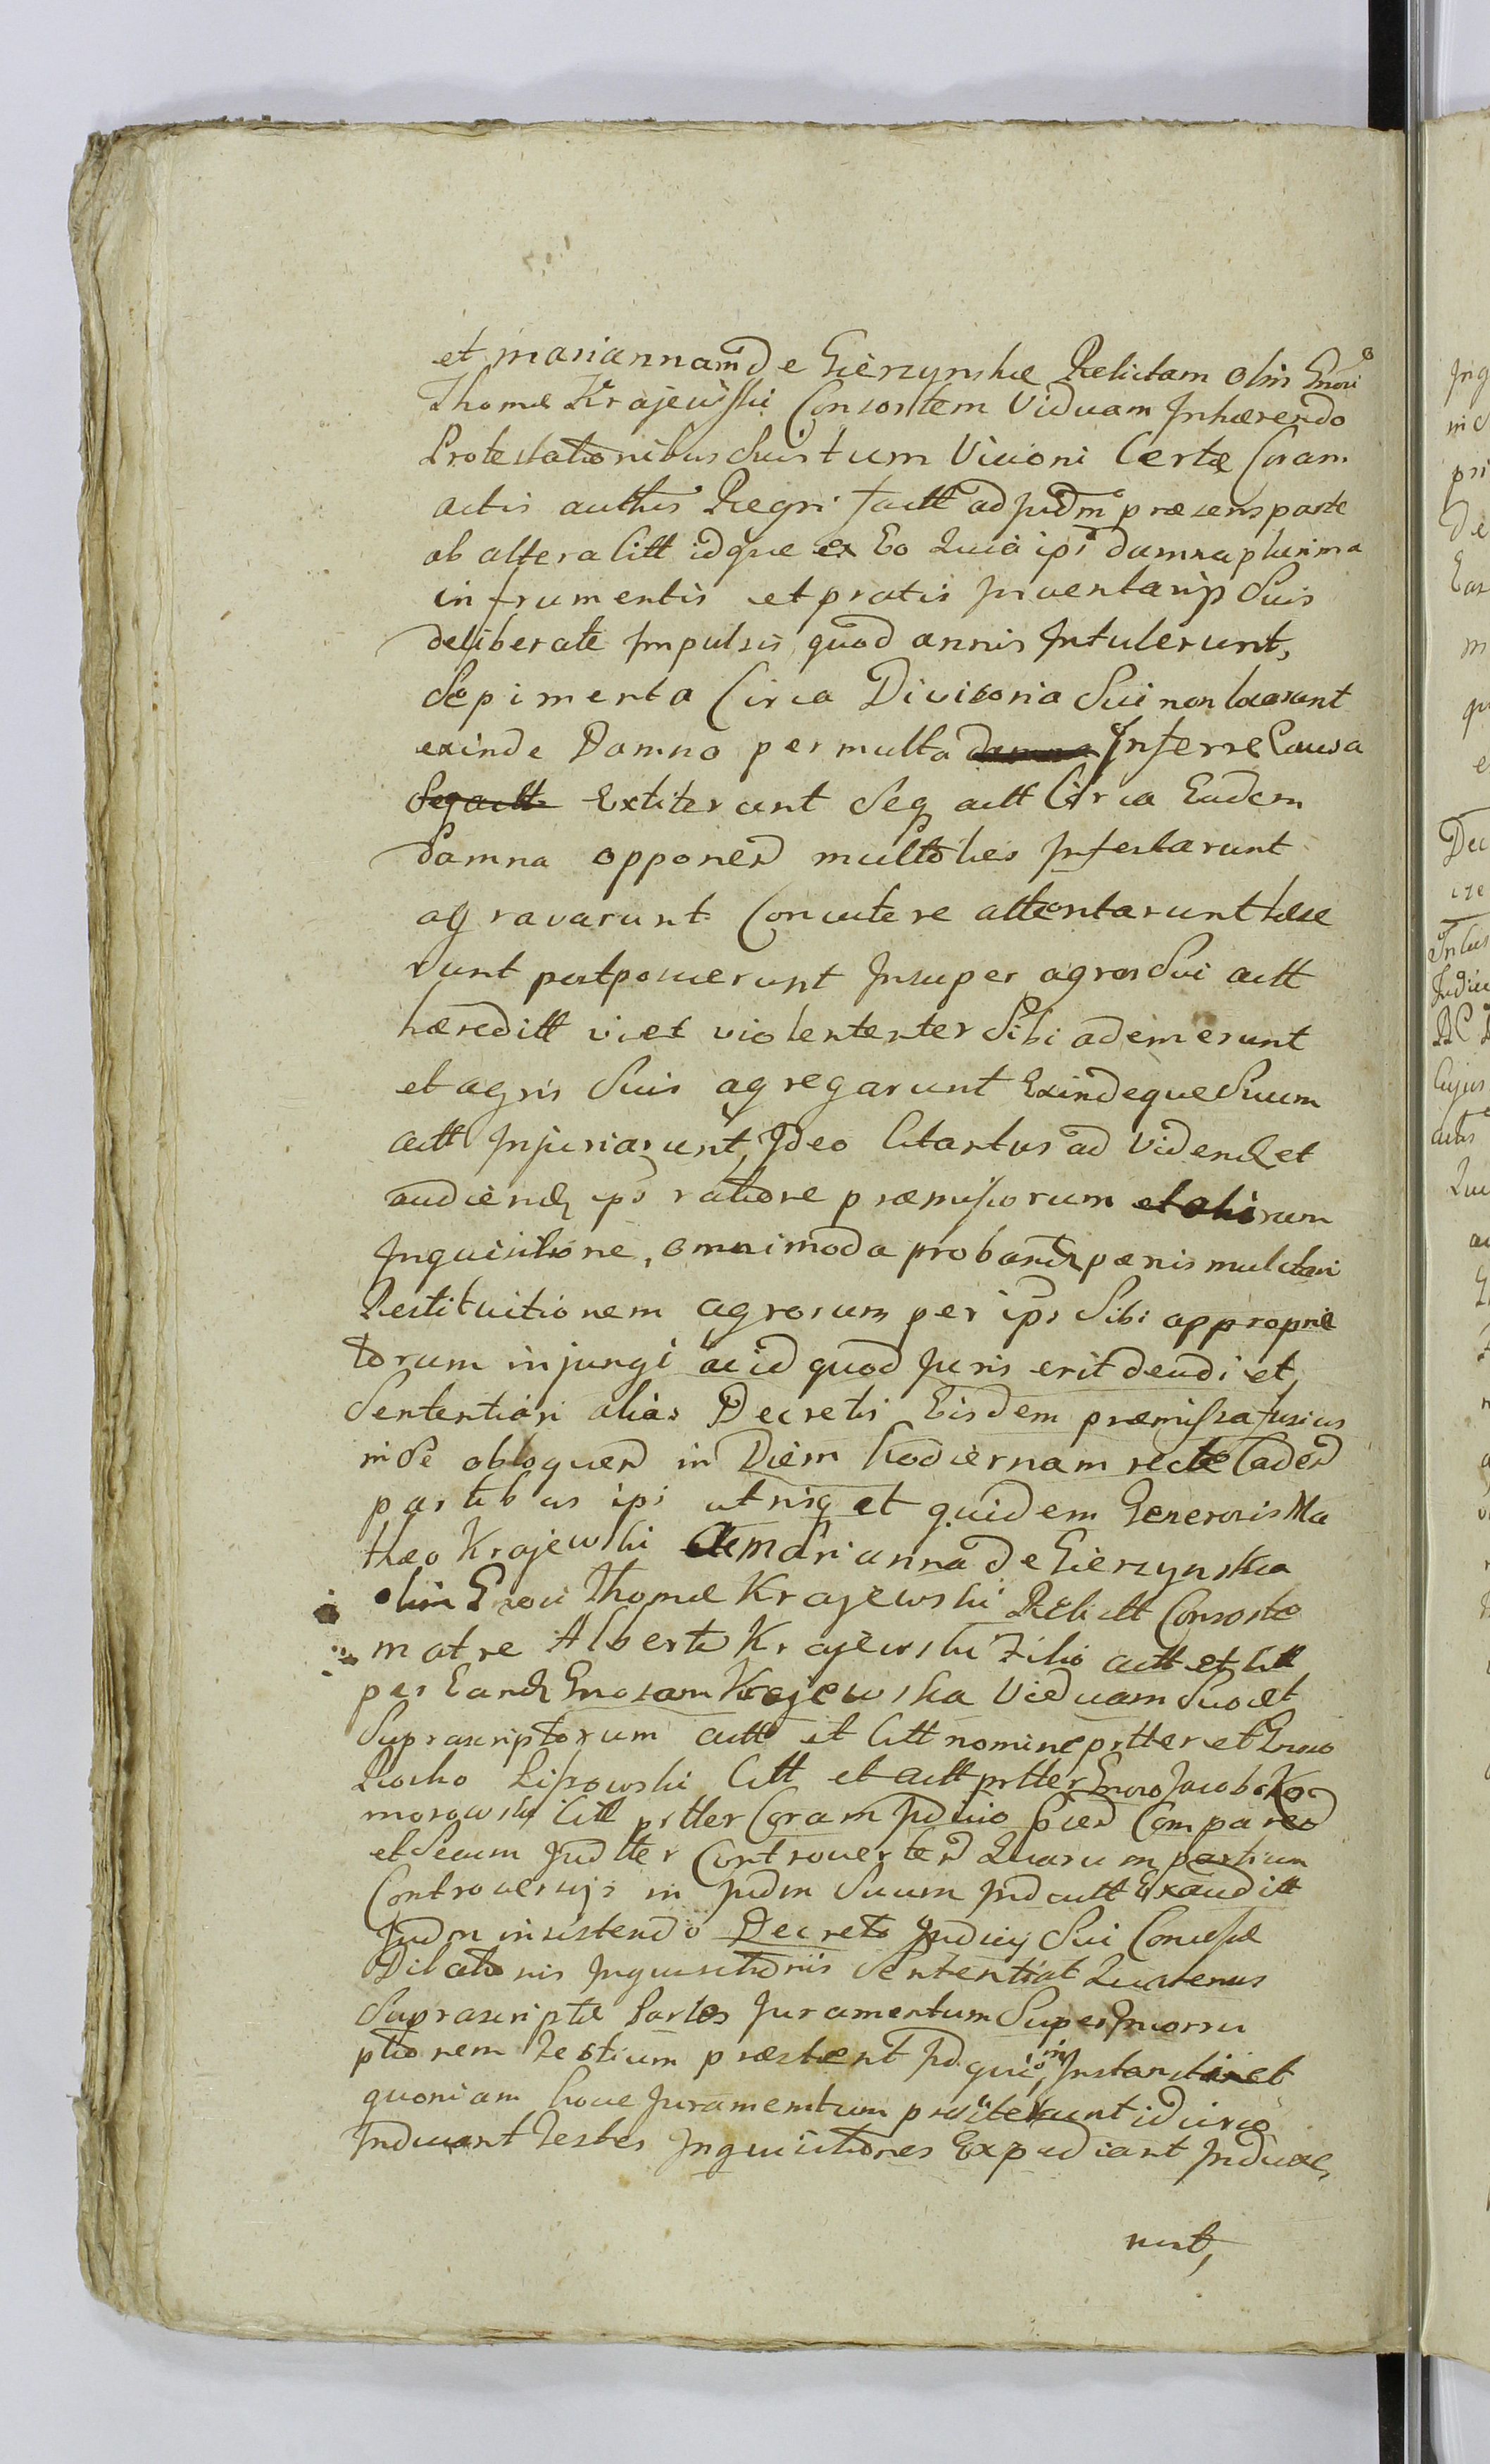 et mariannam de Gierzynskie Relictam olim Gnosi
Thomæ Krajewski Consortem Viduam Inhærendo
Protestationibus Suis tum Visioni Certæ Coram
actis authis Regni factt ad judm præsens parte
ab altera Citt idque ex Eo Quia ipi damna plurima
in frumentis et pratis per ventarijs Suis
deliberate Impulsis quod annis Intulerunt,
Sepimenta Circa Divisoria Sui non locarunt
exinde Damno permulta damna Inferre Causa
Seq actt Extiterunt Seq actt Circa Eadem
damna opponend multoties Infestarunt
agravarunt Concutere attentarunt læse
runt postposuerunt Insuper agros Sui actt
hæreditt vi et violententer Sibi ademerunt
et agris Suis agregarunt Exindeque Suum
actt Injuriarunt, Ideo Citantus ad Videnđ et
audienđ ips ratione præmissorum et aliorum
Inquisitione, omnimoda probanđ pænis mulctari
Restituitionem agrorum per ips Sibi approprie
torum injungi ac id quod Juris erit decudi et
Sententiari alias Decretis Eisdem præmissa fusius
in Se obloquend in Diem hodiernam recte Cadend
partibus ipi utrisq et quidem Generosis Ma
thæo Krajewski Ac marianna de Gierzynskia
olim Gnosi Thomæ Krajewski Relictt Consorte
matre Alberto Krajewski Filio actt et Citt
per Eandđ Gnosam Krajewska Viduam Suo et
Suprascriptorum actt et Citt nomine prtter et Gnoso
Rocho Lissowski Citt et actt prtter Gnoso Jacobo Ko
morowski Citt prtter Coram Judicio Sicd Comparend
et Secum Judtter Controvertend Quarum partium
Controversijs in Judm Suum Ind cutt Exauditt
Judm insistendo Decreto Judicij Sui Concessæ
Dilationis Inquisitionis Sententiat Quatenus
Suprascriptæ Partes Juramentum Super Incorru
ptionem Testium præstent Id qui in Instanti et
quoniam hocce Juramemtum prestiterunt idcirco
Inducant Testes Inquisitiones Expediant Induxe,
runt,